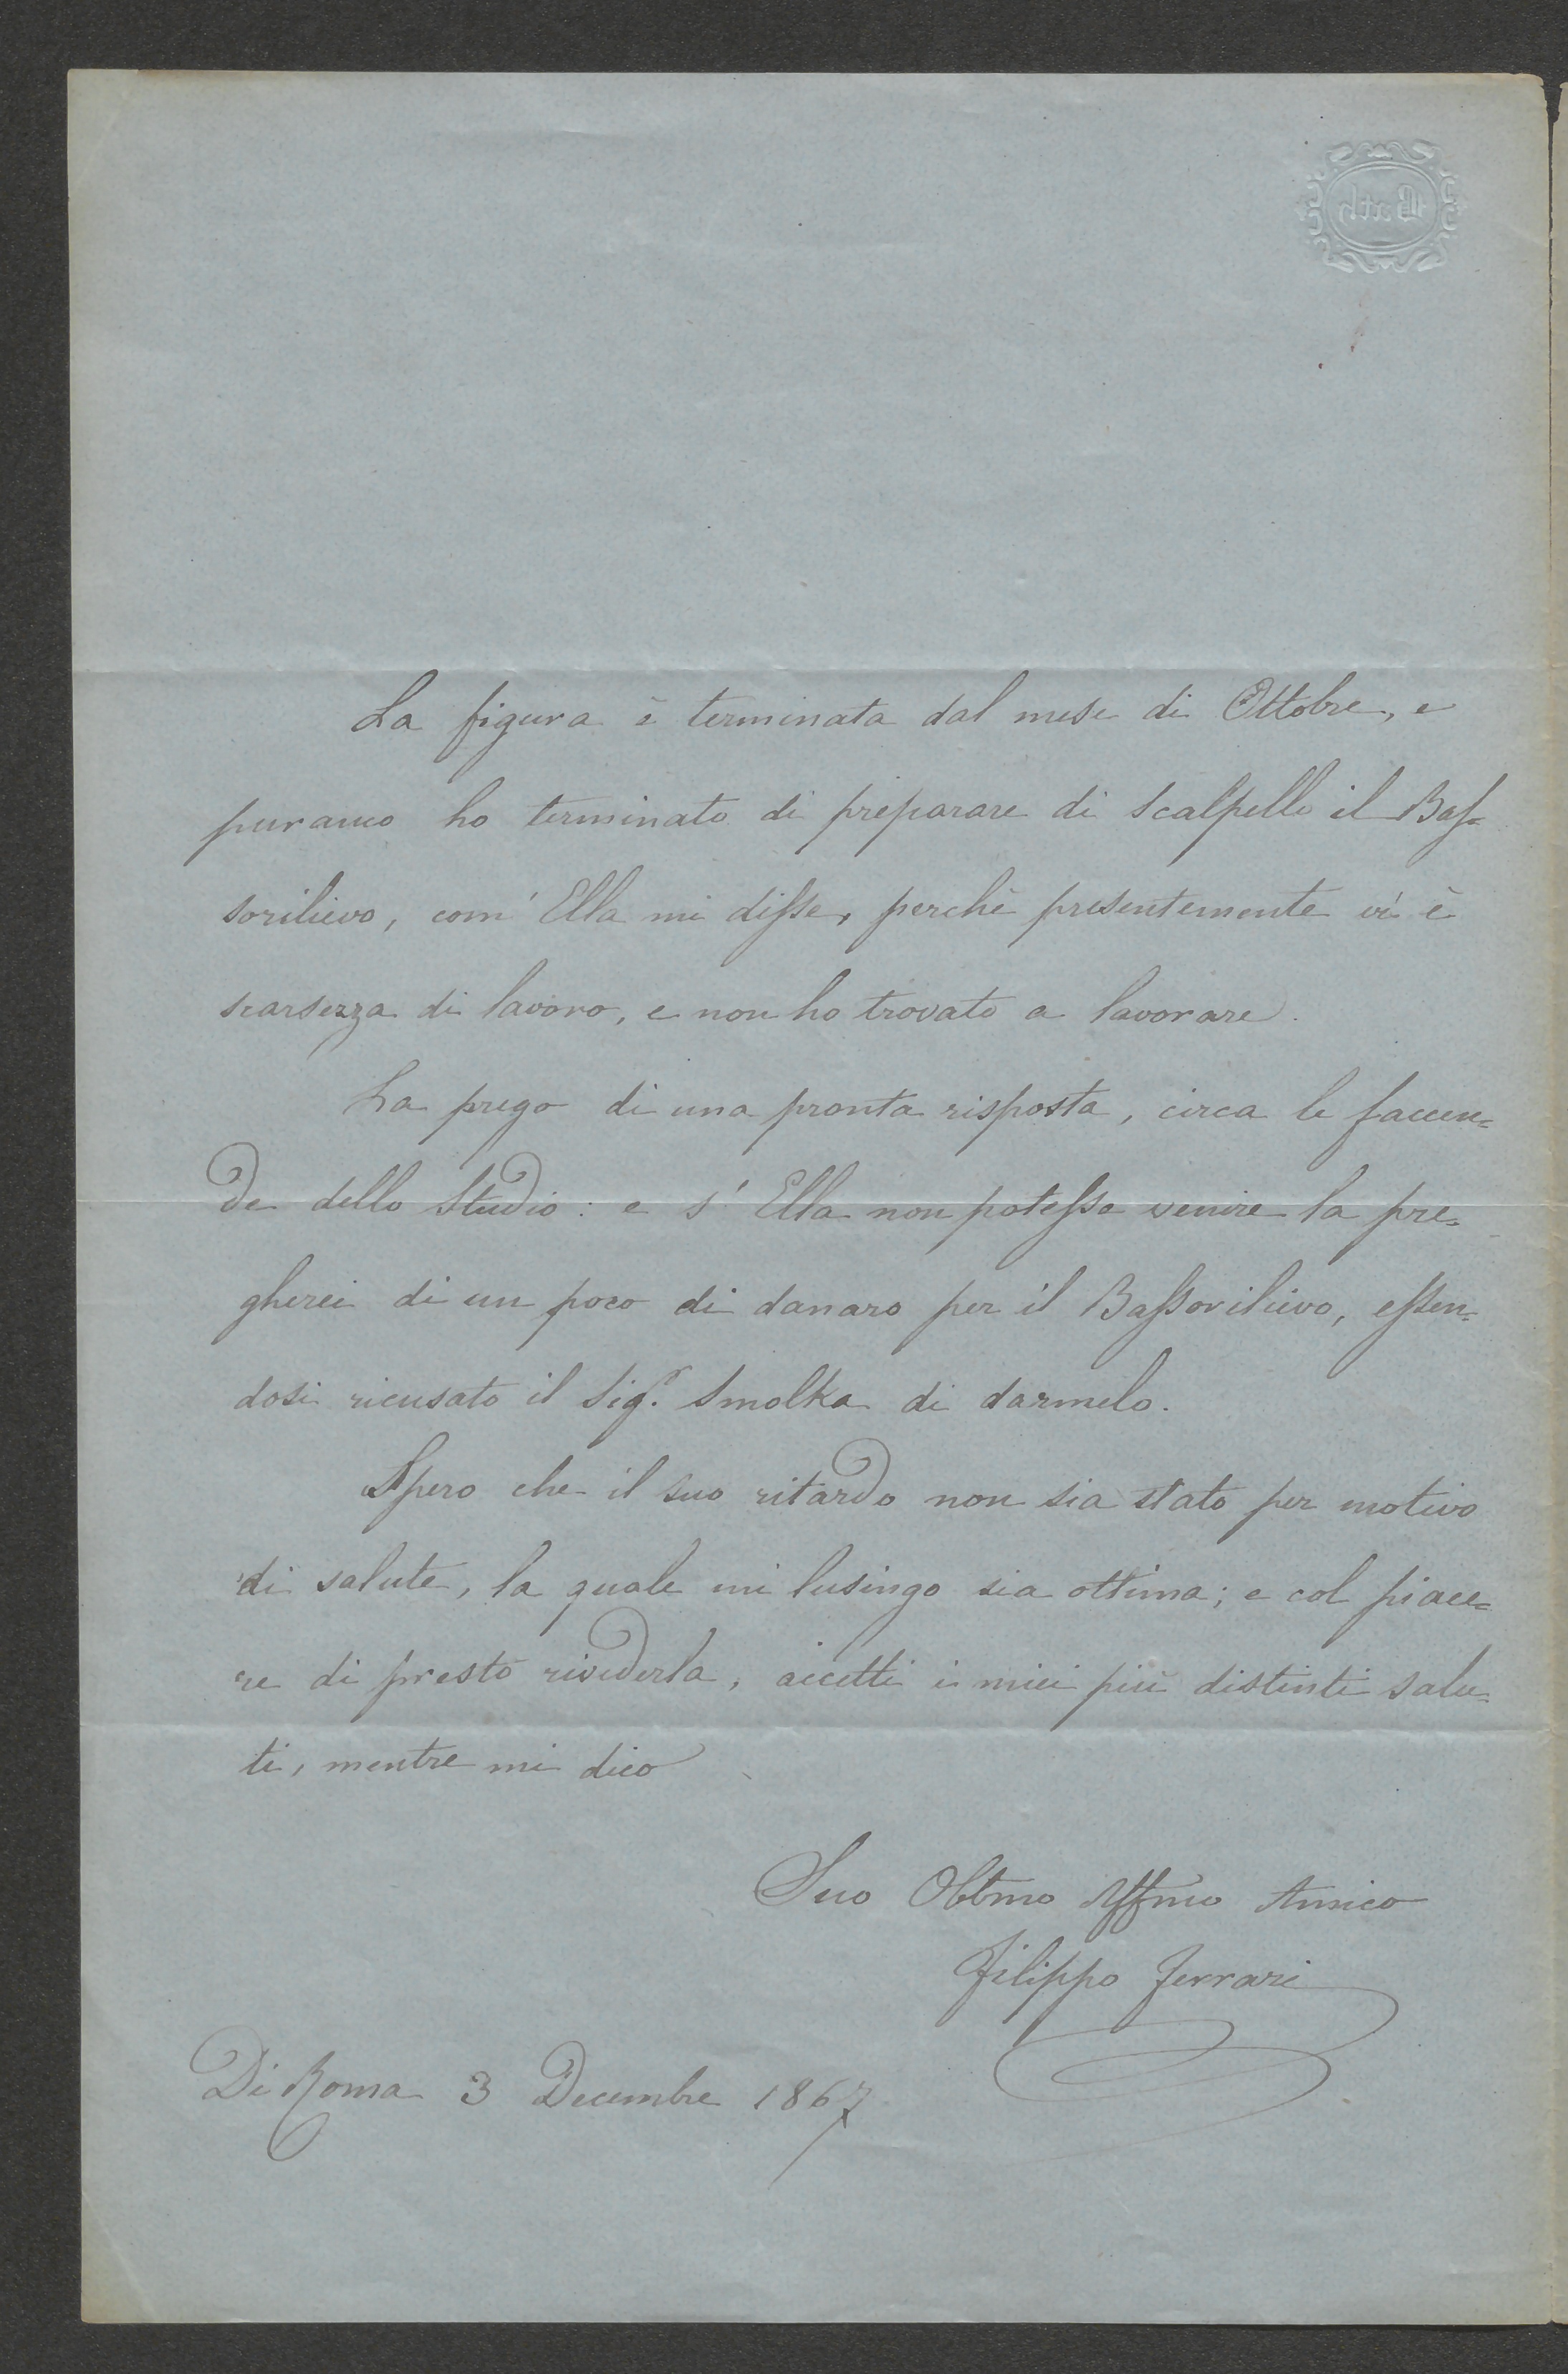 Bath
La figura è terminata dal mese di Ottobre, e
puranco ho terminato di preparare di scalpello il Bas=
sorilievo, com' Ella mi disse, perchè presentemente vi è
scarsezza di lavoro, e non ho trovato a lavorare.
La prego di una pronta risposta, circa le faccen=
de dello Studio: e s' Ella non potesse venire la pre=
gherei di un poco di danaro per il Bassorilievo, essen=
dosi ricusato il Sigr. Smolka di darmelo.
Spero che il suo ritardo non sia stato per motivo
di salute, la quale mi lusingo sia ottima; e col piace=
re di presto rivederla, accetti i miei più distinti salu=
ti, mentre mi dico
Suo Obbmo Affmo Amico
Filippo Ferrari
Di Roma 3 Decembre 1867